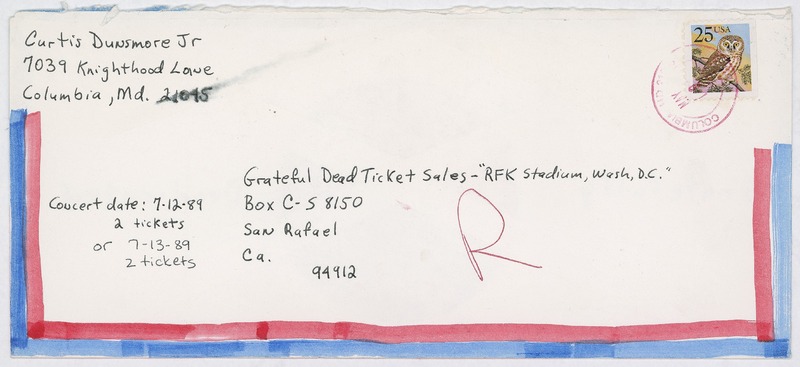 Curtis Dunsmore Jr
7039 Knighthood Lane
Columbia, Md. 21045
25 USA
COLUMBIA
MAY
Grateful Dead Ticket Sales - "RFK Stadium, Wash, D.C."
Box C-S 8150
San Rafael
Ca.
94912
Concert date: 7-12-89
2 tickets
or 7-13-89
2 tickets
R